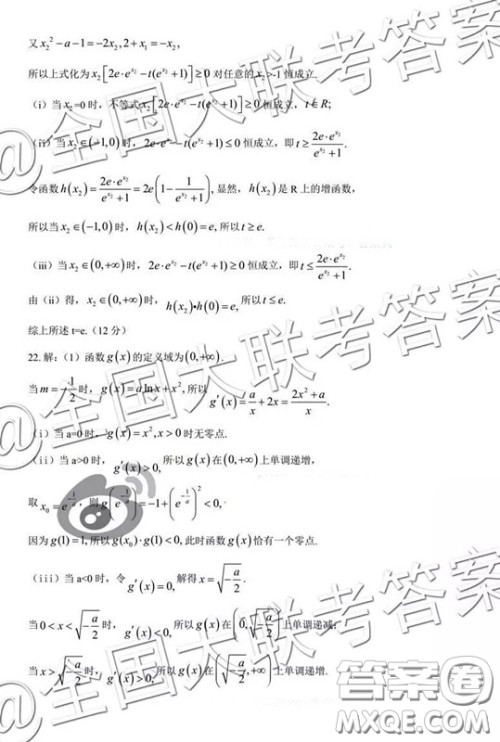 又x₂²-a-1=-2x₂,2+x₁=-x₂,
所以上式化为x₂[2e·e^{x₂}-t(e^{x₂}+1)]≥0 对任意的x₂>-1 恒成立.
（i）当x₂=0时，不等式x₂[2e·e^{x₂}-t(e^{x₂}+1)]≥0恒成立，t∈R;
（ii）当x₂∈(-1,0)时，2e·e^{x₂}-t(e^{x₂}+1)≤0 恒成立，即t≥2e·e^{x₂}/(e^{x₂}+1).
令函数h(x₂)=2e·e^{x₂}/(e^{x₂}+1)=2e(1-1/(e^{x₂}+1)), 显然，h(x₂)是 R 上的增函数，
所以当x₂∈(-1,0)时，h(x₂)<h(0)=e, 所以t≥e.
（iii）当x₂∈(0,+∞)时，2e·e^{x₂}-t(e^{x₂}+1)≥0 恒成立，即t≤2e·e^{x₂}/(e^{x₂}+1).
由（ii）得，x₂∈(0,+∞)时，h(x₂)>h(0)=e, 所以t≤e.
综上所述 t=e.（12 分）
22.解：（1）函数g(x)的定义域为(0,+∞).
当m=-1/2时，g(x)=alnx+x², 所以 g′(x)=a/x+2x=(2x²+a)/x.
（i）当 a=0 时，g(x)=x²,x>0时无零点.
（ii）当 a>0 时，g′(x)>0, 所以g(x)在(0,+∞)上单调递增，
取x₀=e^{-1/a}，则g(e^{-1/a})=-1+(e^{-1/a})²<0,
因为g(1)=1,所以g(x₀)·g(1)<0,此时函数g(x)恰有一个零点.
（iii）当 a<0 时，令 g′(x)=0, 解得x=√(-a/2).
当0<x<√(-a/2)时，g′(x)<0,所以g(x)在(0,√(-a/2))上单调递减;
当x>√(-a/2)时，g′(x)>0,所以g(x)在(√(-a/2),+∞)上单调递增.
@全国大联考答案
@全国大联考答案
@全国大联考答案
答案卷
MXQE.COM